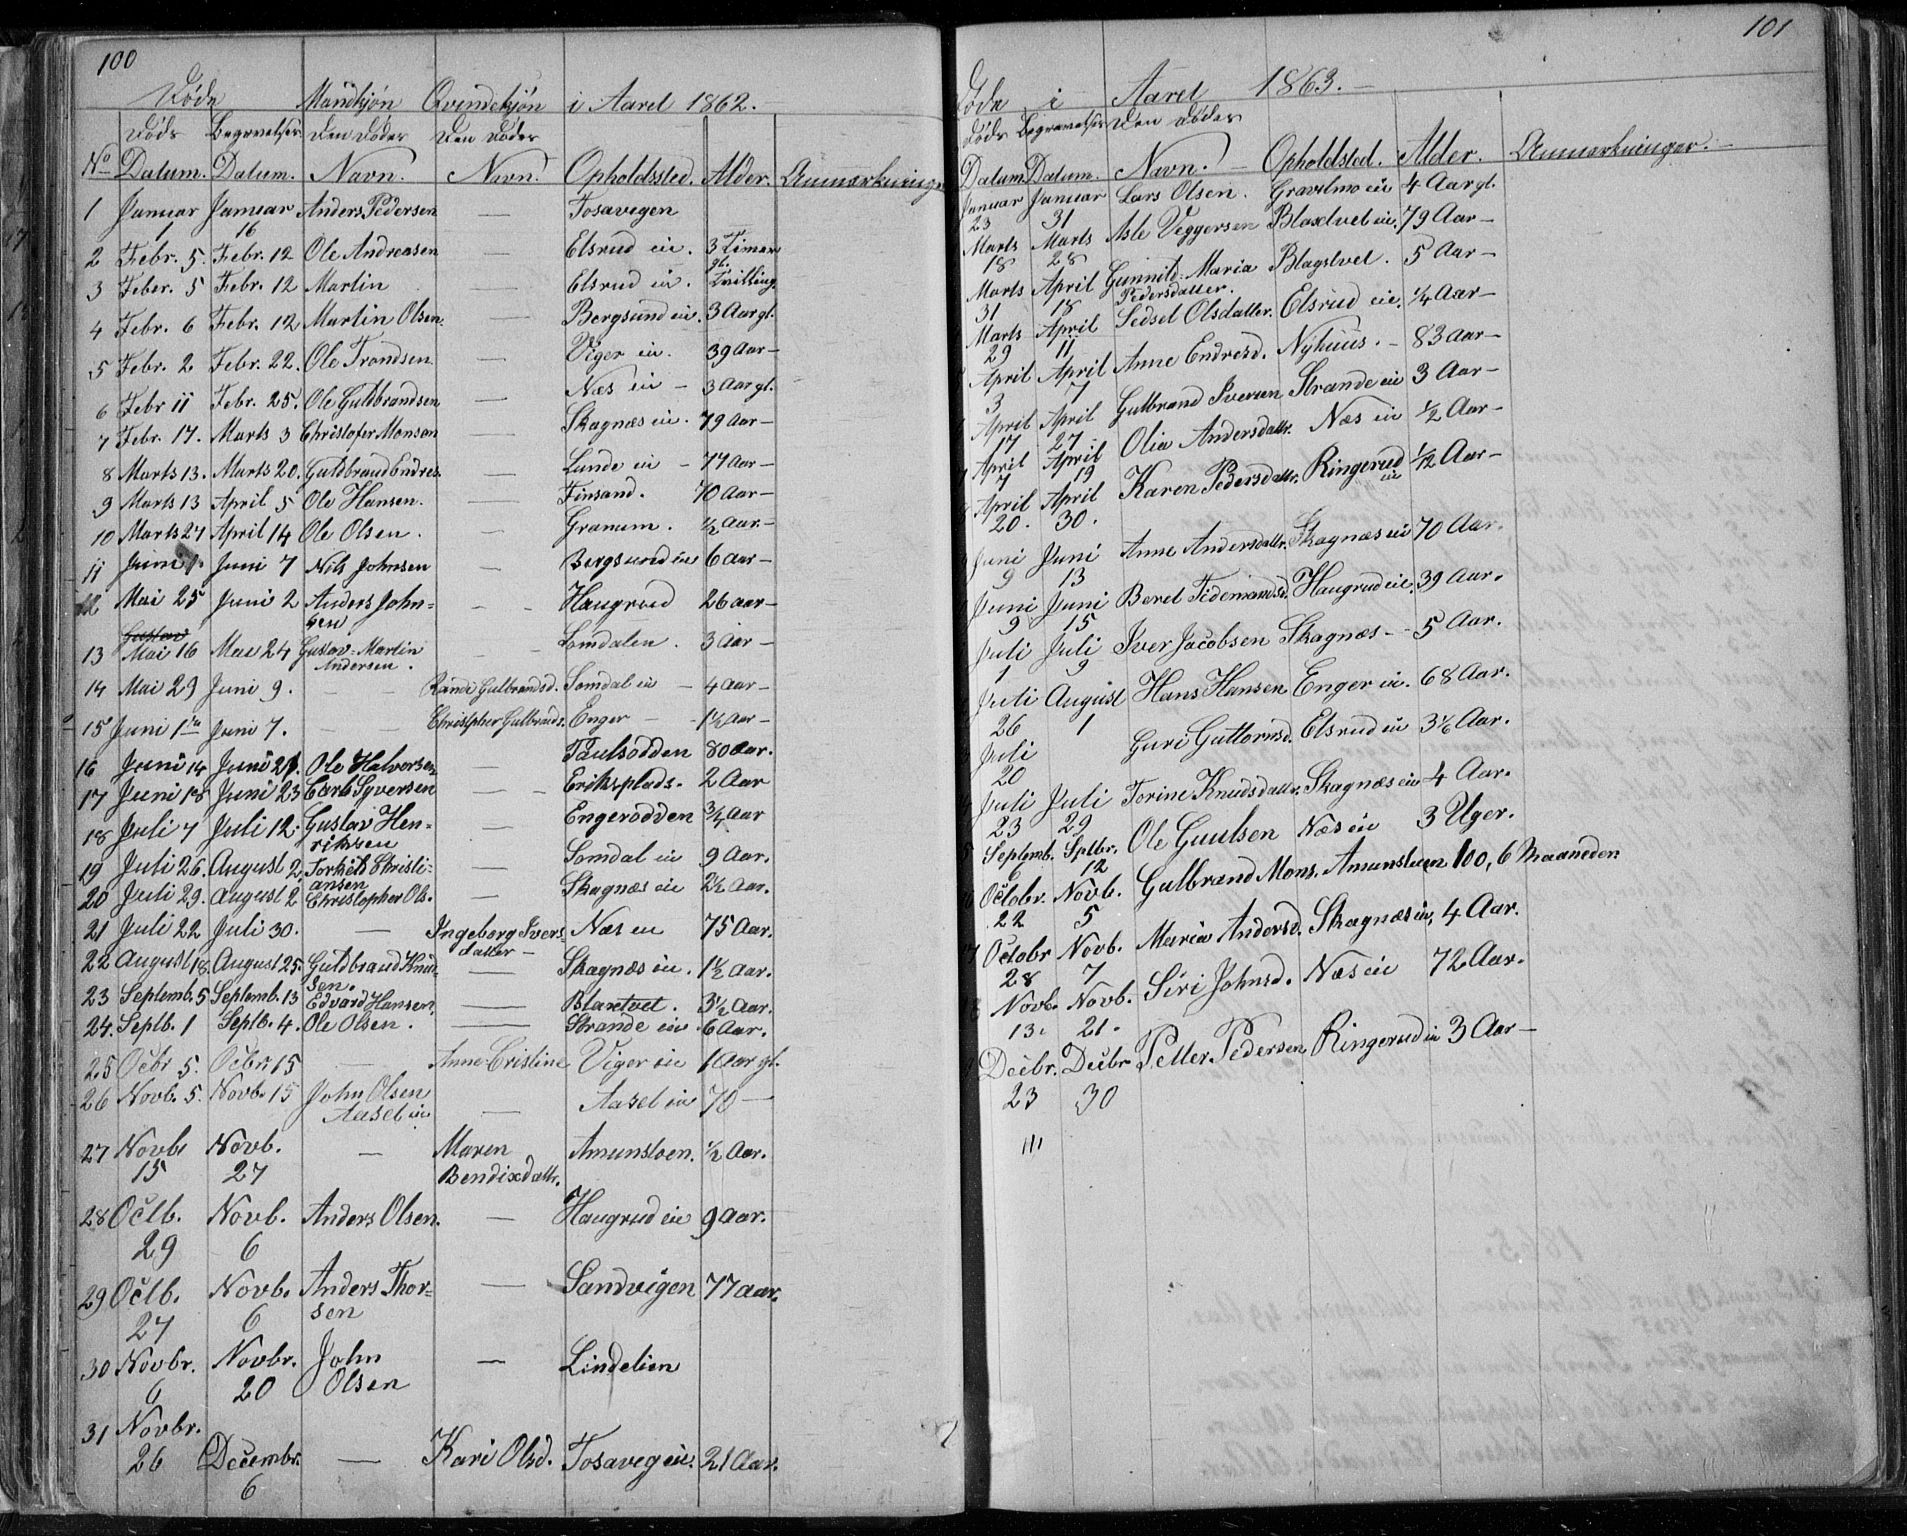 100
Døde Mandkjøn Qvindekjøn i Aaret 1862.
Døds Begravelses Den Døder Den Døder
No Datum. Datum. Navn. Navn. Opholdssted. Alder. Anmærkninger
1 Januar 1 Januar 16 Anders Pedersen — Tosavegen
2 Febr. 5. Febr. 12 Ole Andreasen — Elsrud eie. 3 Timer gl.
3 Feber. 5 Febr. 12 Martin — Elsrud ei. Tvilling.
4 Febr. 6 Febr. 12 Martin Olsen. — Bergsund eie. 3 Aar gl.
5 Febr. 2 Febr. 22. Ole Trondsen. — Viger eie. 39 Aar —
6 Febr 11 Febr. 25. Ole Guldbrandsen — Næs eie — 3 Aar gl.
7 Febr. 17. Marts 3 Christofer Monsen — Skagnæs eie. 79 Aar —
8 Marts 13. Marts 20. Guldbrand Endres. — Lunde eie — 77 Aar —
9 Marts 13 April 5 Ole Hansen. — Finsand. 70 Aar —
10 Marts 27 April 14 Ole Olsen. — Granum. ½ Aar. —
11 Juni 1. Juni 7 Nils Johnsen — Bergsund eie 6 Aar —
12 Mai 25 Juni 2 Anders John=
sen — Haugrud 26 Aar —
Gustav
13 Mai 16 Mai 24 Gustav Martin
Andersen. — Lomdalen. 3 Aar —
14 Mai 29 Juni 9. — Rande Gulbrandsd. Somdal eie — 4 Aar —
15 Juni 1ste Juni 7. — Christpher Gulbrands. Enger — 1½ Aar —
16 Juni 14 Juni 21. Ole Halvorsen — Paulsødden 80 Aar.
17 Juni 18 Juni 23 Carl Syversen — Eriksplads. 2 Aar
18 Juli 7 Juli 12. Gustav Hen=
riksen — Engerodden ¾ Aar
19 Juli 26. August 2. Torkild Christi-
ansen — Somdal eie 9 Aar.
20 Juli 29. August 2 Christopher Ols. — Skagnæs eie 2½ Aar.
21 Juli 22 Juli 30. — Ingeborg Ivers-
datter — Næs eie 75 Aar.
22 August 18. August 25. Guldbrand Knud-
sen. — Skagnæs eie. 1½ Aar.
23 Septemb. 5 Septemb. 13 Edvard Hansen — Blaxtvet. 3½ Aar.
24. Septb. 1 Septb. 4. Ole Olsen. — Strande eie 6 Aar.
25 Octbr 5. Octbr 15 — Anne Cristine Viger eie 1 Aar gl.
26 Novb. 5. Novb. 15 John Olsen
Aasel eie — Aasel eie 70 —
27 Novb. 15 Novb. 27 — Maren
Bendixdattr. Amunsloen. ½ Aar.
28 Octb. 29 Novb. 6 Anders Olsen. — Haugrud eie 9 Aar.
29 Octb. 27 Novb. 6 Anders Thor=
sen — Sandvigen 77 Aar.
30 Novbr. 6 Novbr. 20 John
Olsen — Lindelien
31 Novbr. 26 Decembr. 6 — Kari Olsd. Tosaveg eie. 21 Aar.
101
Døde i Aaret 1863. —
Døds Begravelses Den Døder
Datum Datum. Navn. — Opholdsted. Alder. Anmærkninger. —
Januar 23 Januar 31 Lars Olsen. Gravelmo eie 4 Aar gl.
Marts 18 Marts 28 Asle Veggersen Blaxtvet eie. 79 Aar —
Marts 31 April 18 Gunnild Maria
Pedersdatter. Blagstvet. 5 Aar —
Marts 29 April 11 Sedsel Olsdatter. Elsrud eie. ¼ Aar —
April 3 April 7 Anne Endresd. Nyhuus. — 83 Aar —
April 17 April 27 Gulbrand Iversen Strande eie 3 Aar —
April 7 April 19 Olia Andersdattr. Næs eie ½ Aar —
April 20. April 30. Karen Pedersdattr. Ringerud
eie 1/12 Aar —
Juni 9 Juni 13 Anne Andersdattr. Skagnæs eie 70 Aar.
Juni 9 Juni 15 Beret Tidemandsd. Haugrud eie. 39 Aar.
Juli 1 Juli 9 Iver Jacobsen Skagnæs — 5 Aar.
Juli 26 August 1 Hans Hansen Enger eie. 68 Aar.
Juli 20 Guri Guttormsd. Elsrud eie 3⅙ Aar.
Juli 23 Juli 29 Torine Knudsdattr. Skagnæs eie 4 Aar.
Septemb. 6 Septbr. 12 Ole Guulsen Næs eie 3 Uger.
Octobr. 22 Novb. 5 Gulbrand Mons. Amunsloen 100, 6 Maaneder.
Octobr 28 Novb. 7 Maria Andersd. Skagnæs eie, 4 Aar.
Novb. 13. Novb. 21. Siri Johnsd. Næs eie 72 Aar.
Decbr. 23 Decbr 30 Petter Pedersen Ringerud ei 3 Aar —